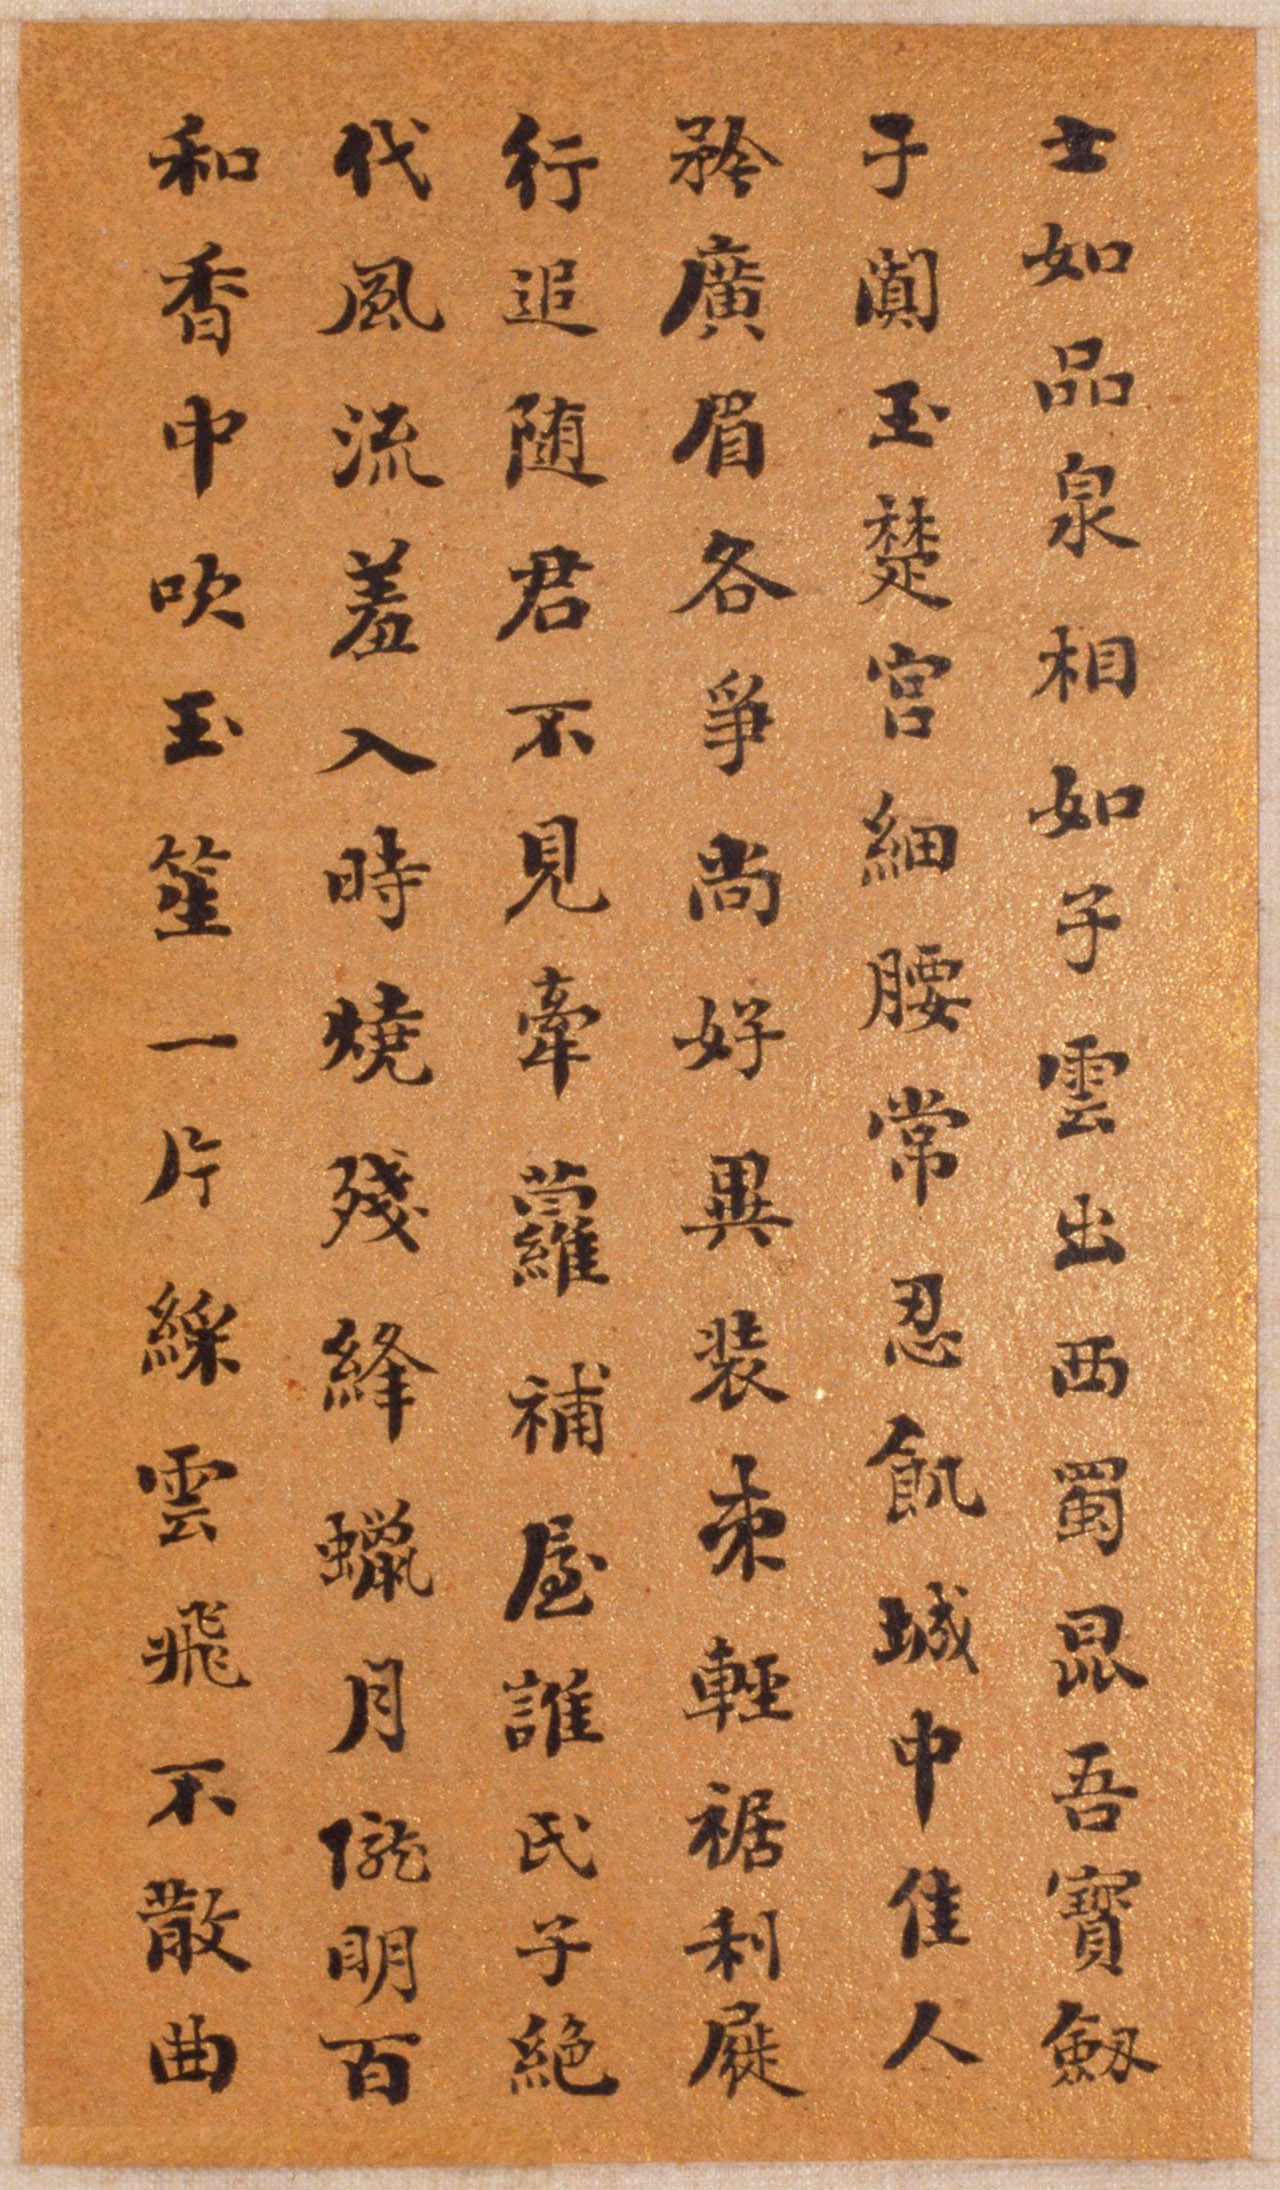 士如品泉相如子雲出西蜀昆吾寶劔
于闐玉楚宮細腰常忍飢城中佳人
矜廣眉各爭尚好異装束輕裾利屣
行追随君不見牽蘿補屋誰氏子絶
代風流羞入時燒殘絳蠟月儱明百
和香中吹玉笙一片綵雲飛不散曲